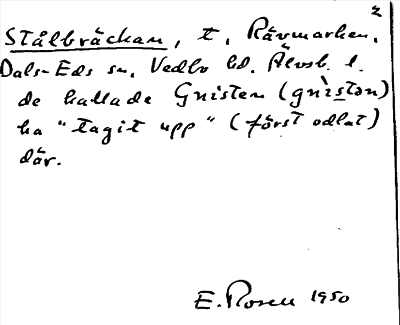 2
Stålbräckan, t. Rävmarken,
Dals-Eds sn, Vedbo hd. Älvsb. l.
de kallade Gnisten (gnìstən)
ha "tagit upp" (först odlat)
där.
E. Rosen 1950